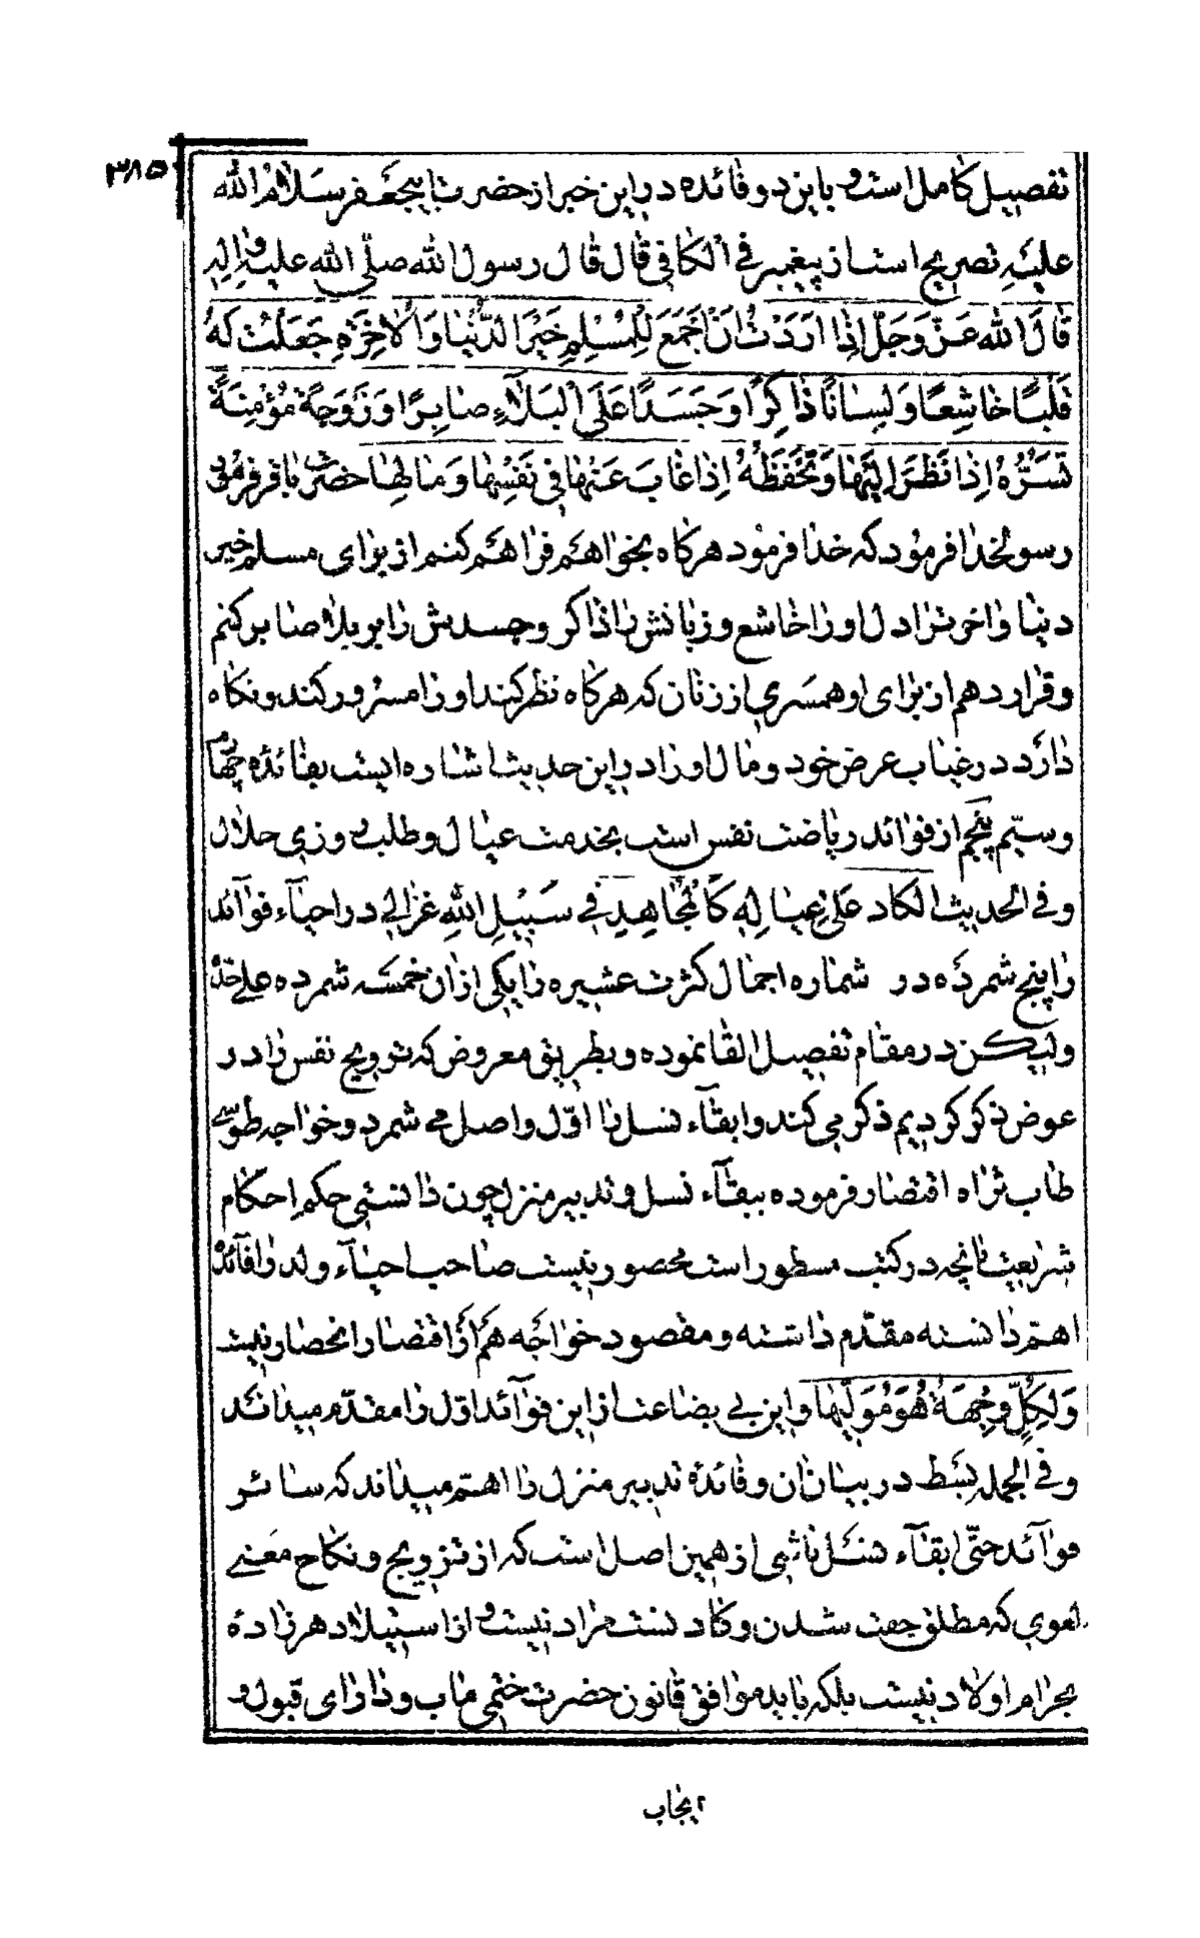 ۳۸۵
تفصیل کامل است و باین دو فائده در این خبر از حضرت ابیجعفر سلام الله
علیه تصریح است از پیغمبر فی الکافی قال قال رسول الله صلّی الله علیه و اله
قَالَ اللّه عَزَّ وَجَلَّ اِذا اَرَدْتُ اَنْ اَجْمَعَ لِلْمُسْلِمِ خَیْرَ الدُّنْیا وَ الْاٰخِرَةِ جَعَلْتُ لَهُ
قَلْبًا خاشِعًا وَ لِسانًا ذاکِرًا وَ جَسَدًا عَلَی الْبَلآءِ صابِرًا وَ زَوْجَةً مُؤْمِنَةً
تَسُرُّهُ اِذا نَظَرَ اِلَیْها وَ تَحْفَظُهُ اِذا غابَ عَنْها فی نَفْسِها وَ مالِها حضرت باقر فرمود
رسولخدا فرمود که خدا فرمود هرکاه بخواهم فراهم کنم از برای مسلم خیر
دنیا و اخرت را دل او را خاشع و زبانش را ذاکر و جسدش را بر بلا صابر کنم
و قرار دهم از برای او همسری از زنان که هرکاه نظر کند او را مسرور کند و نکاه
دارد در غیاب عرض خود و مال او را در این حدیث اشاره ایست بفائدهٔ چهارم
و سیّم پنجم از فوائد ریاضت نفس است بخدمت عیال و طلب روزی حلال
و فی الحدیث الکاد عَلیٰ عِیالِهِ کَالْمُجاهِدِ فی سَبیلِ اللّهِ غزالی در احیآء فوآئد
را پنج شمرده در شماره اجمال کثرت عشیره را یکی از ان خمسه شمرده علی حدّه
و لیکن در مقام تفصیل القا نموده و بطریق معروض که ترویج نفس را در
عوض ذکر کردیم ذکر می کند و ابقآء نسل را اوّل و اصل می شمرد و خواجه طوسی
طاب ثراه اقتصار فرموده ببقآء نسل و تدبیر منزل چون دانستی حکم احکام
شریعت بانچه در کتب مسطور است محصور نیست صاحب احیآء ولد را فآئدهٔ
اهم دانسته مقدّم داشته و مقصود خواجه هم از اقتصار انحصار نیست
وَ لِکُلٍّ وِجْهَةٌ هُوَ مُوَلّیها و این بی بضاعت از این فوآئد اوّل را مقدّم میداند
و فی الجمله بسط در بیان ان و فائدهٔ تدبیر منزل را اهتم میداند که سائر
فوآئد حتّی ابقآء نسل ناشی از همین اصل است که از تزویج و نکاح معنی
لغوی که مطلق جفت شدن و کاد نست مراد نیست و از استیلاد هر زادهٔ
بحرام اولاد نیست بلکه باید موافق قانون حضرت ختمی ماب و دارای قبول و
ایجاب